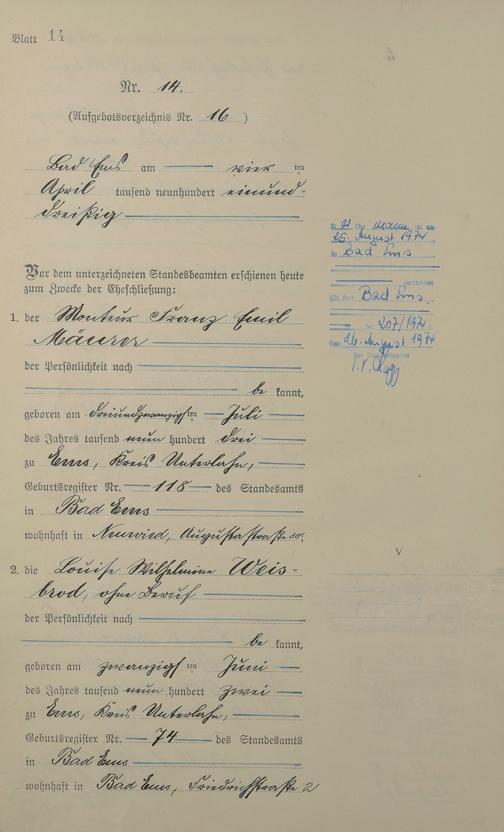 Blatt 14
Nr. 14.
(Aufgebotsverzeichnis Nr. 16)
Bad Ems am vier ten
April tausend neunhundert einund-
dreißig
Vor dem unterzeichneten Standesbeamten erschienen heute
zum Zwecke der Eheschließung:
1. der Monteur Franz Emil
Mäurer
der Persönlichkeit nach
be kannt,
geboren am dreiundzwanzigsten Juli
des Jahres tausend neun hundert drei
zu Ems, Kreis Unterlahn,
Geburtsregister Nr. 118 des Standesamts
in Bad Ems
wohnhaft in Neuwied, Augustastraße
2. die Louise Wilhelmine Weis-
brod, ohne Beruf
der Persönlichkeit nach
be kannt,
geboren am zwanzigsten Juni
des Jahres tausend neun hundert zwei
zu Ems, Kreis Unterlahn,
Geburtsregister Nr. 74 des Standesamts
in Bad Ems
wohnhaft in Bad Ems, Friedrichstraße 2
25. August 1974
in Bad Ems
verstorben
Bad Ems
Nr. 207/1974
Den 26. August 1974
Der Standesbeamte